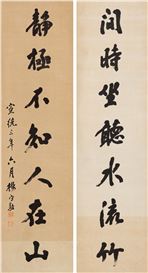 閒時坐聽水流竹
静極不知人在山
宣統三年六月楊守敬